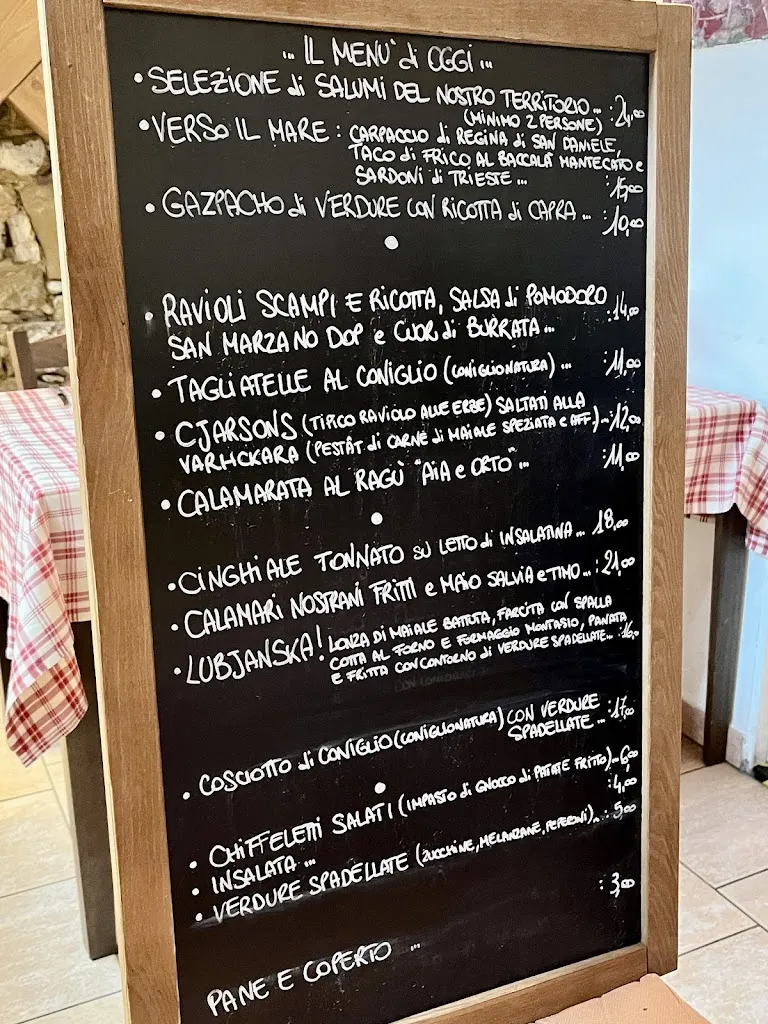 ... IL MENU' di OGGI ...
• SELEZIONE di SALUMI DEL NOSTRO TERRITORIO ... : 21,00
(MINIMO 2 PERSONE)
• VERSO IL MARE : CARPACCIO di REGINA di SAN DANIELE,
TACO di FRICO AL BACCALÀ MANTECATO e
SARDONI di TRIESTE ... : 15,00
• GAZPACHO di VERDURE CON RICOTTA di CAPRA ... : 10,00
• RAVIOLI SCAMPI E RICOTTA, SALSA di POMODORO
SAN MARZANO DOP e CUOR di BURRATA ... : 14,00
• TAGLIATELLE AL CONIGLIO (CONIGLIONATURA) ... : 11,00
• CJARSONS (TIPICO RAVIOLO ALLE ERBE) SALTATI ALLA
VARHCKARA (PESTÀT di CARNE di MAIALE SPEZIATA e AFF.) - 12,00
• CALAMARATA AL RAGÙ "AIA e ORTO" ... : 11,00
• CINGHIALE TONNATO SU LETTO di INSALATINA ... 18,00
• CALAMARI NOSTRANI FRITTI e MAIO SALVIA e TIMO ... : 21,00
• LUBJANSKA! LONZA DI MAIALE BATTUTA, FARCITA CON SPALLA
COTTA AL FORNO E FORMAGGIO MONTASIO, PANATA
E FRITTA CON CONTORNO di VERDURE SPADELLATE ... : 16,00
• COSCIOTTO di CONIGLIO (CONIGLIONATURA) CON VERDURE : 17,00
SPADELLATE ...
• CHIFFELETTI SALATI (IMPASTO di GNOCCO di PATATE FRITTO) - 6,00
• INSALATA ... : 4,00
• VERDURE SPADELLATE (ZUCCHINE, MELANZANE, PEPERONI) .. : 5,00
PANE E COPERTO ... : 3,00